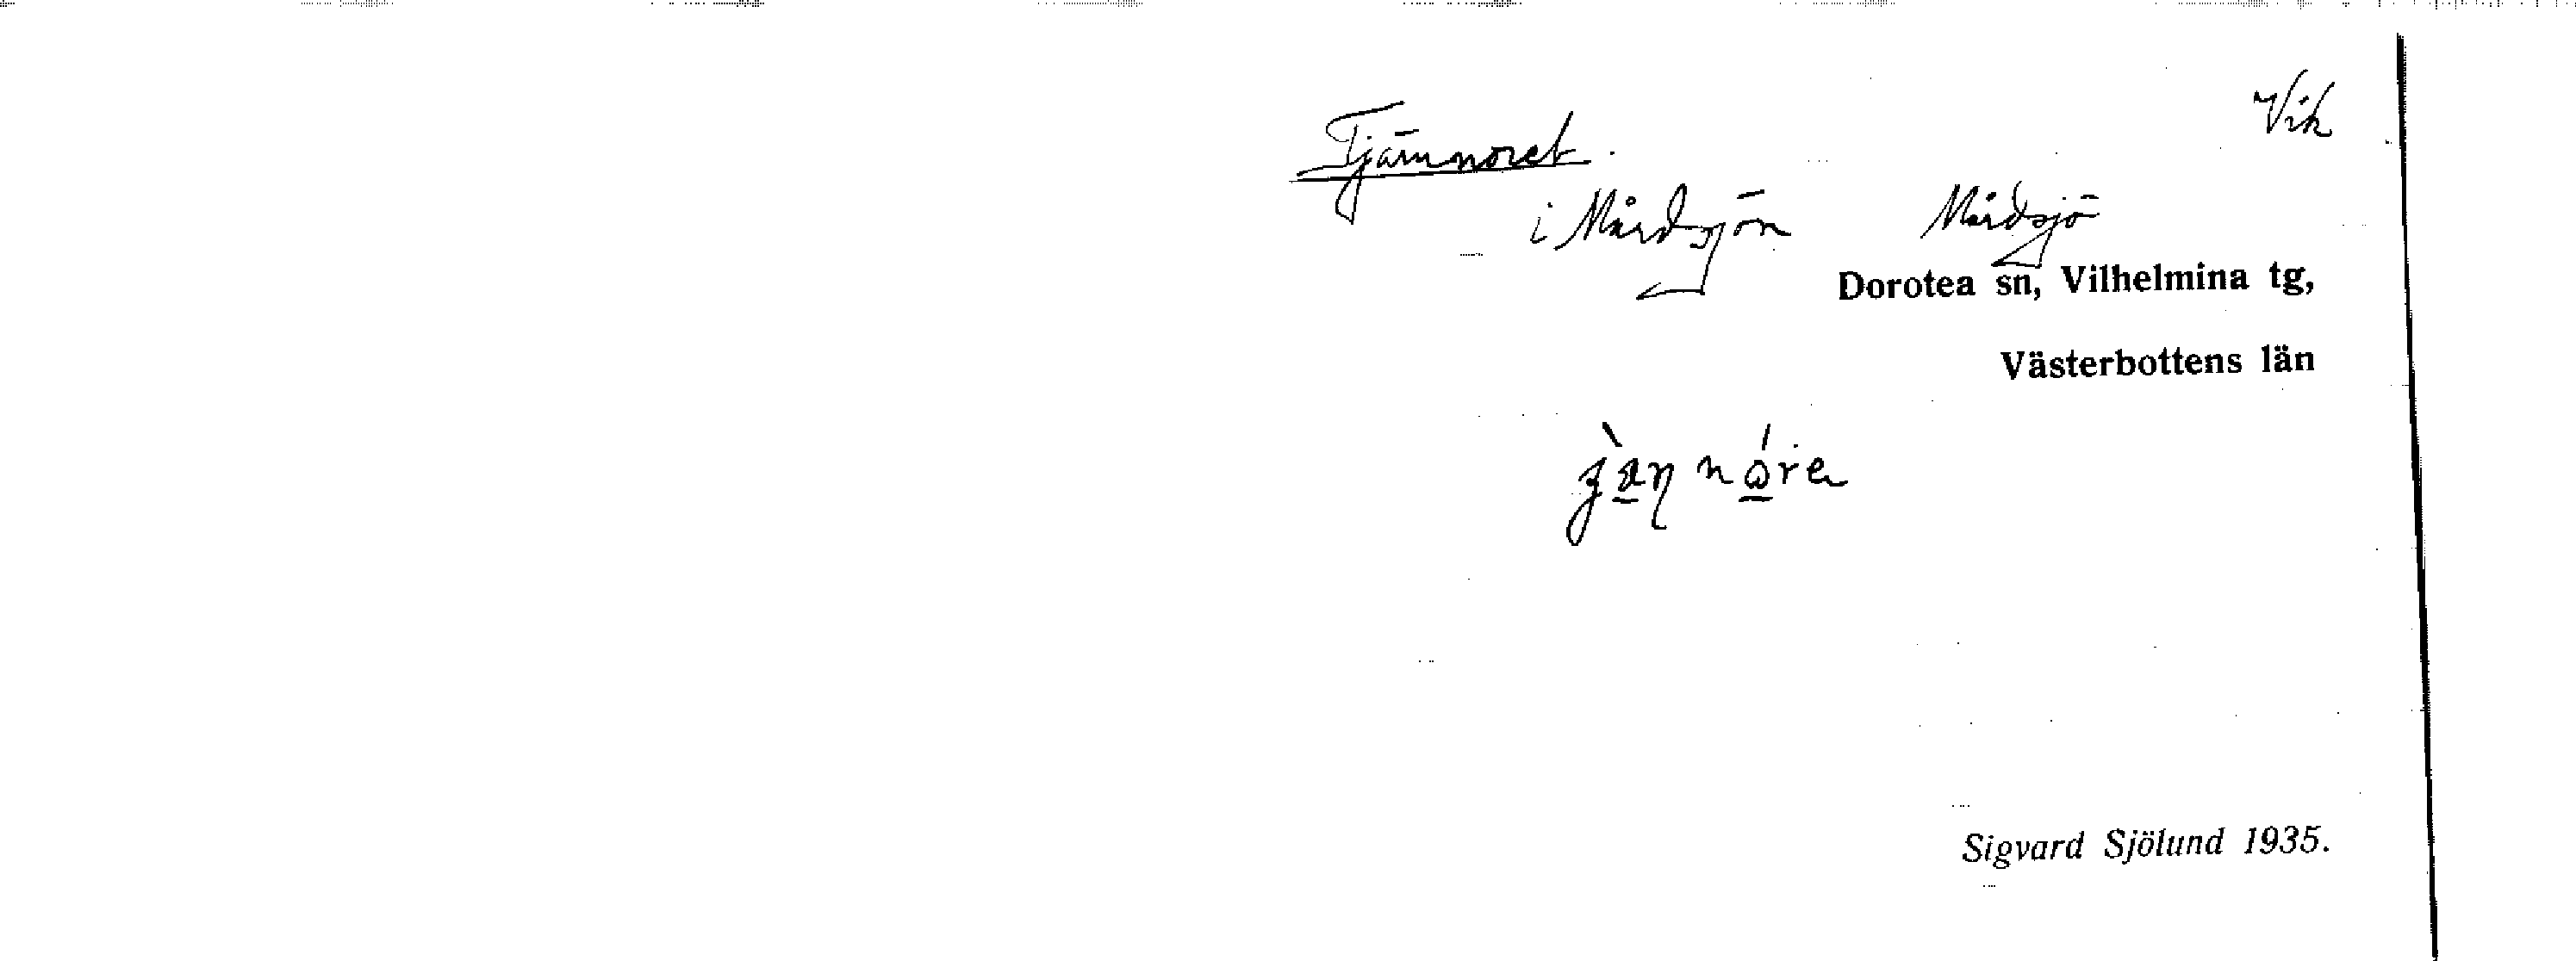 Vik
Tjärnnoret.
i Mårdsjön Mårdsjö
Dorotea sn, Vilhelmina tg,
Västerbottens län
Sigvard Sjölund 1935.